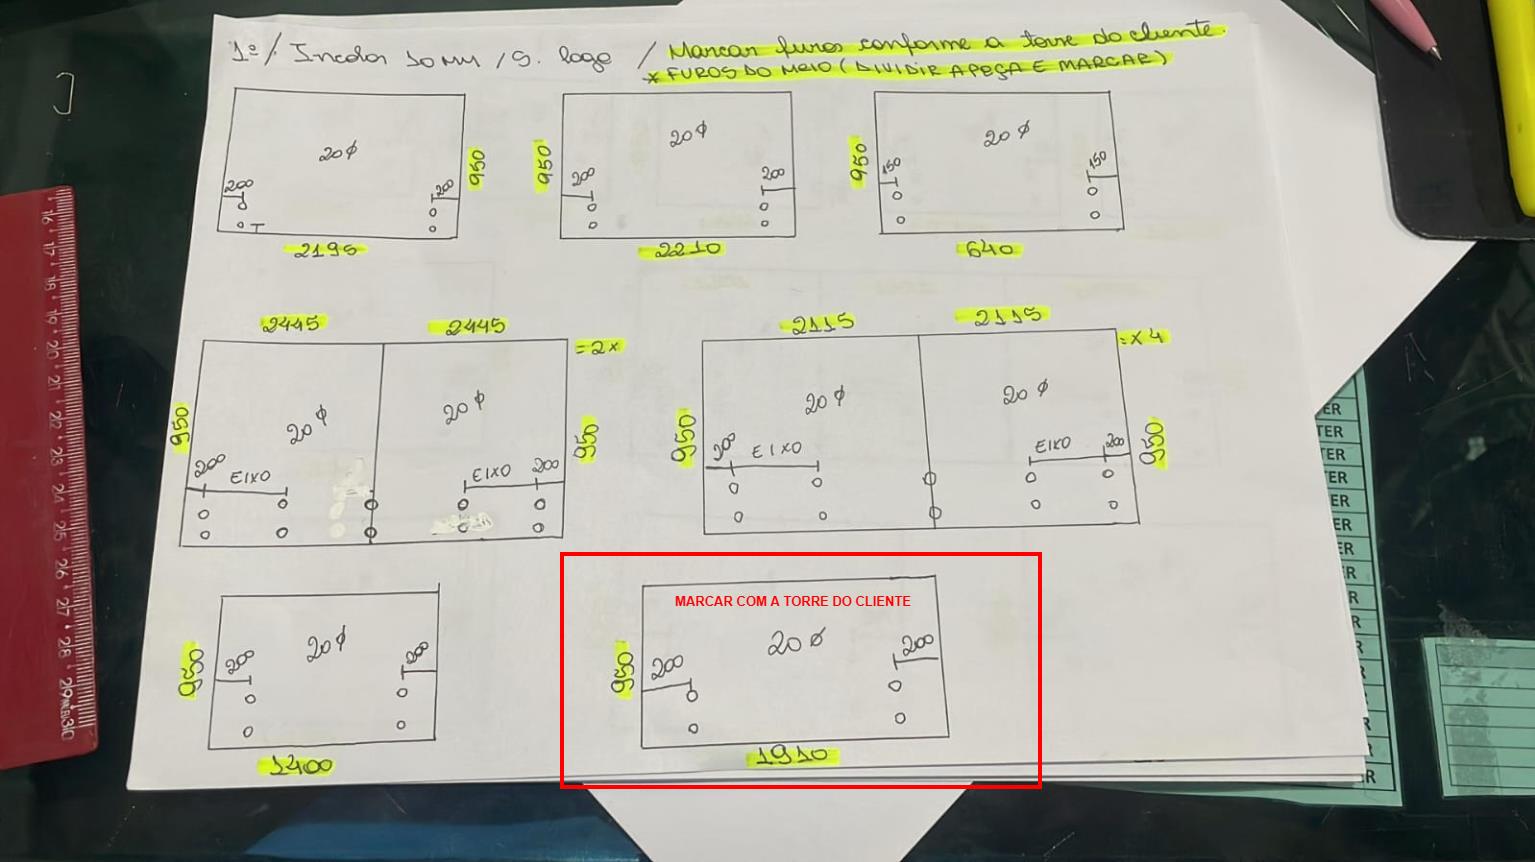 1º / Incolor 10 MM / S. logo / Marcar furos conforme a torre do cliente.
* FUROS DO MEIO (DIVIDIR A PEÇA E MARCAR)
20 ϕ
950
200
200
2195
20 ϕ
950
200
200
2210
20 ϕ
950
150
150
640
2445
2445
= 2x
950
20 ϕ
20 ϕ
950
200
EIXO
EIXO
200
2115
2115
= x 4
950
20 ϕ
20 ϕ
950
200
EIXO
EIXO
200
950
20 ϕ
200
200
1400
MARCAR COM A TORRE DO CLIENTE
950
20 ϕ
200
200
1910
16 17 18 19 20 21 22 23 24 25 26 27 28 29 30
ER
TER
TER
ER
ER
ER
ER
ER
R
R